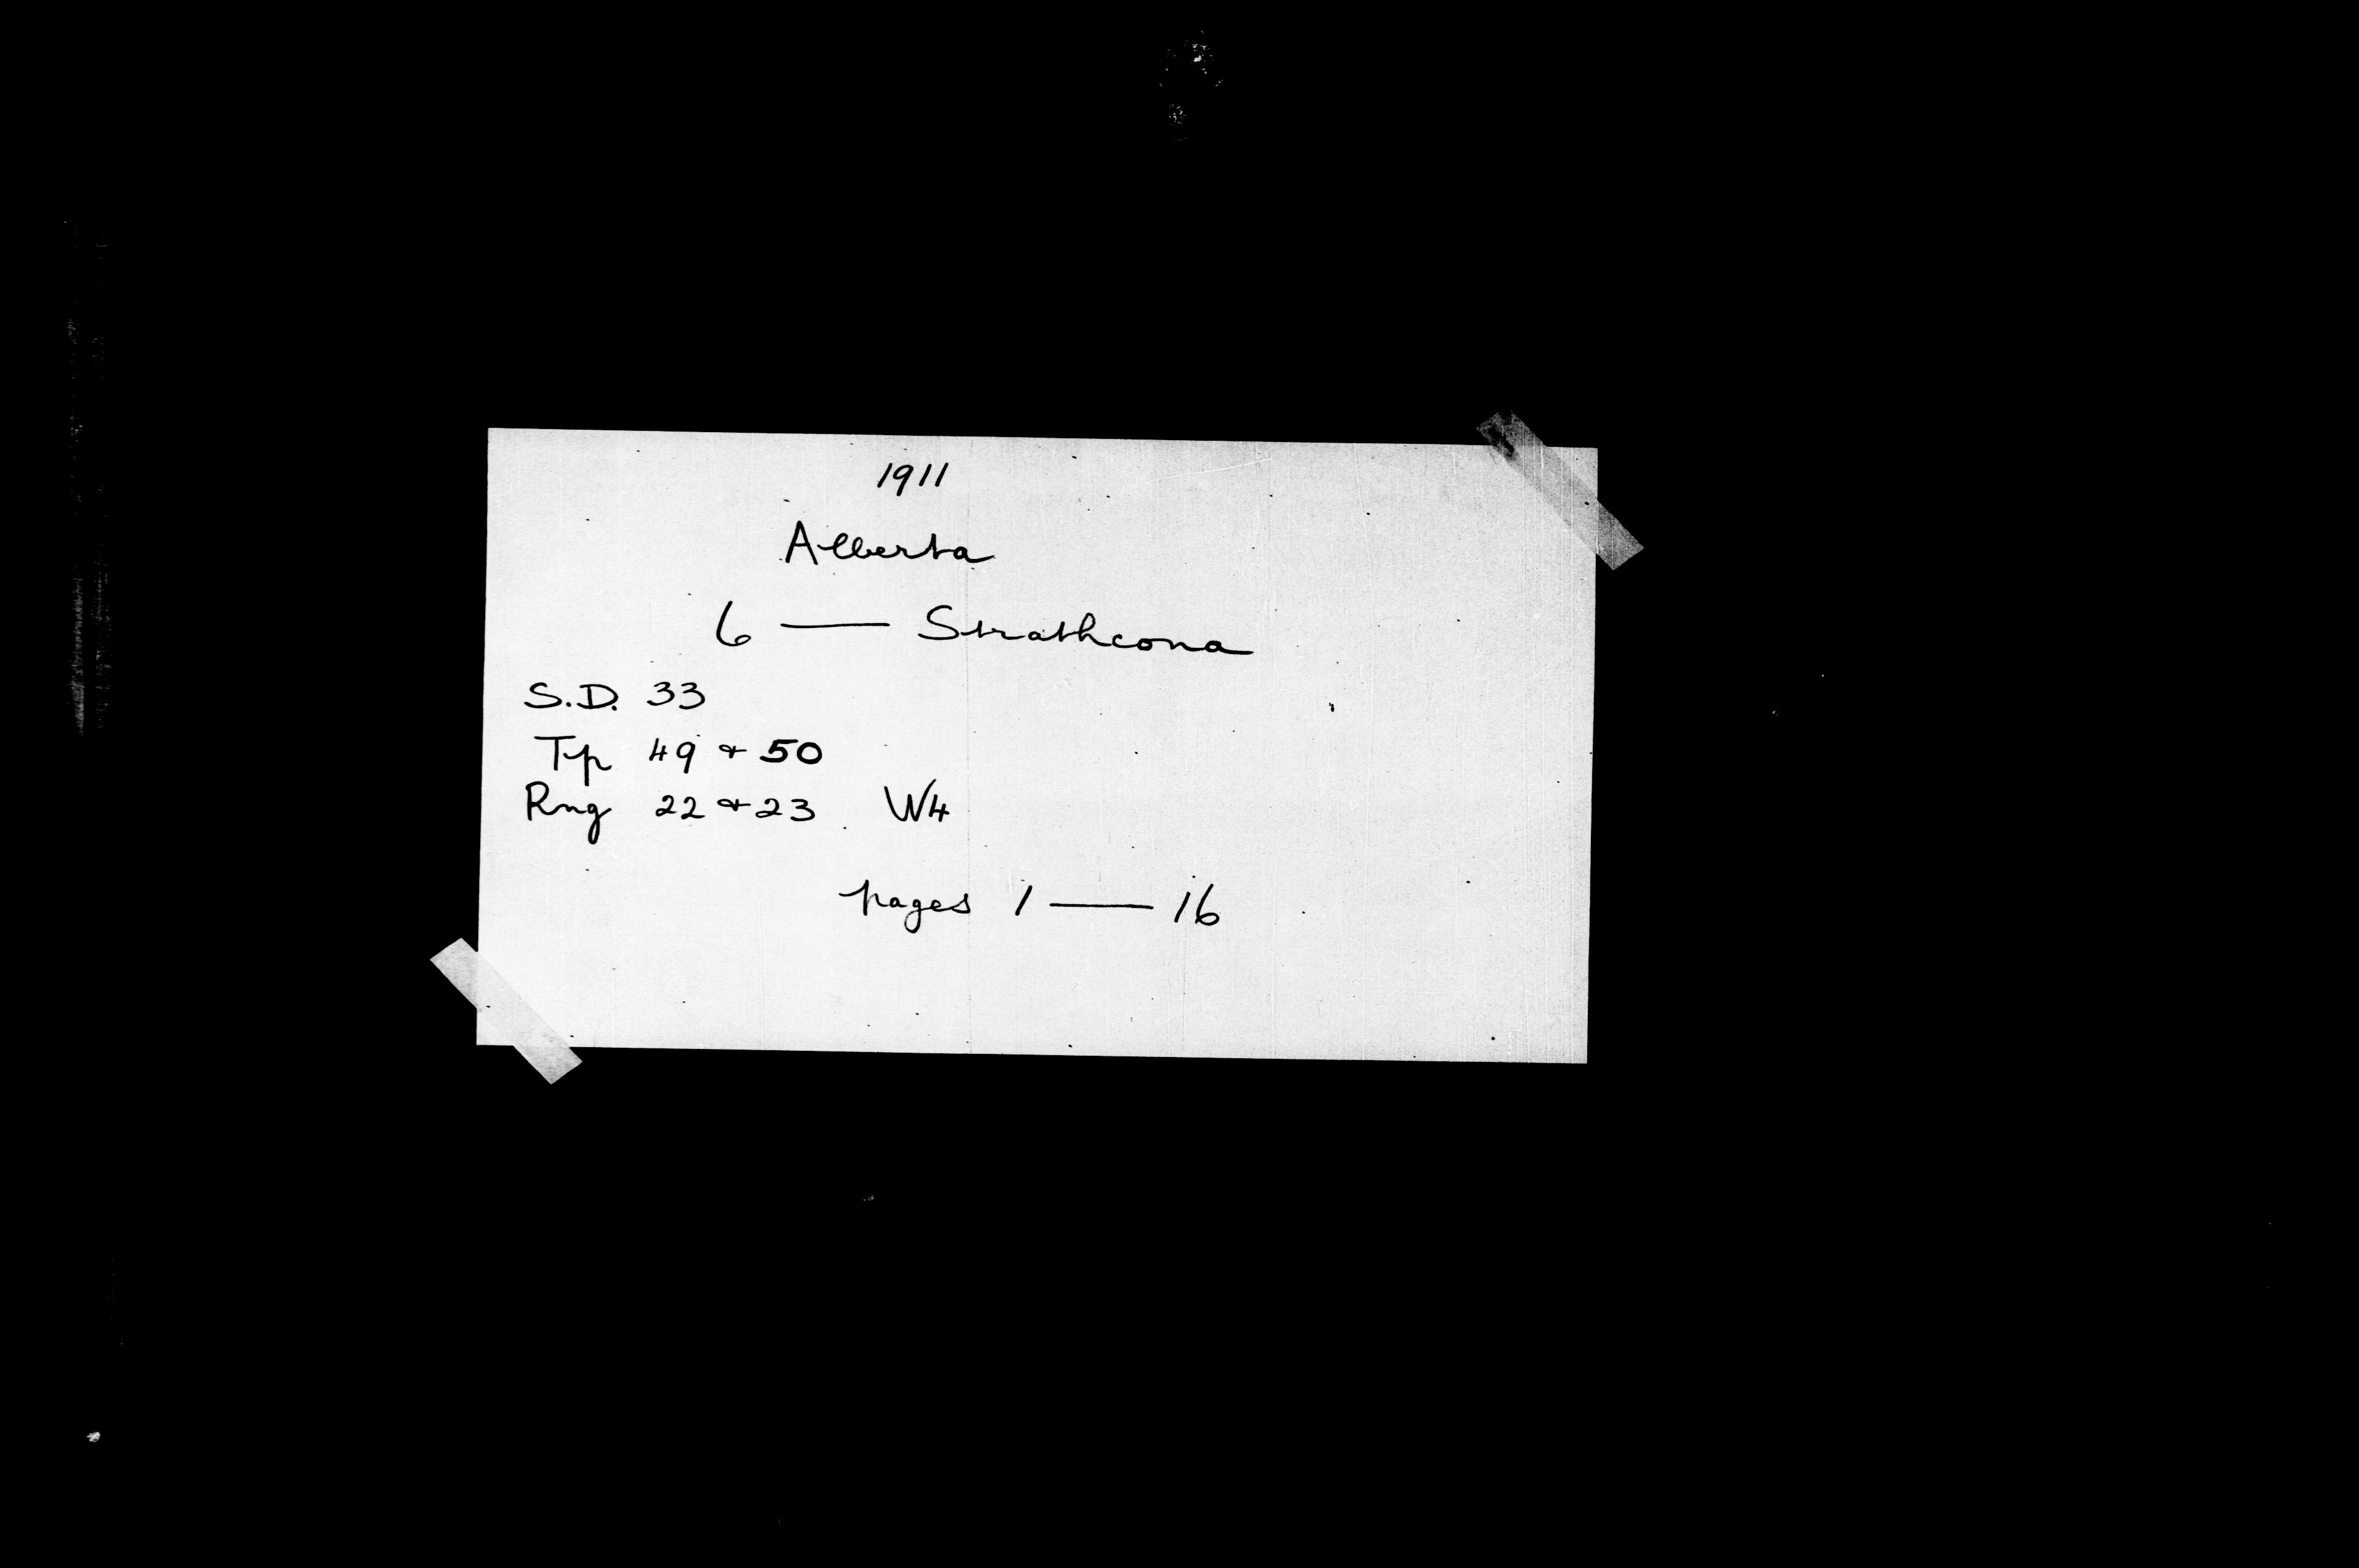 1911
Alberta
6 — Strathcona
S.D. 33
Tp 49 & 50
Rng 22 & 23 W4
pages 1 — 16